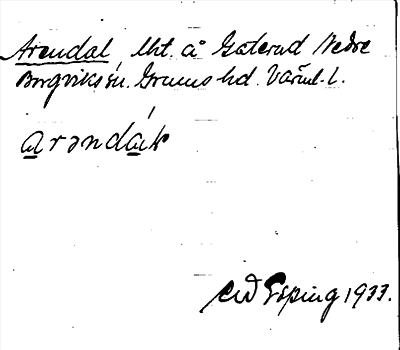 Arendal lht. å Gaterud Nedre
Borgviks sn. Grums hd. Värml. l.
arəndák
Esping 1933.